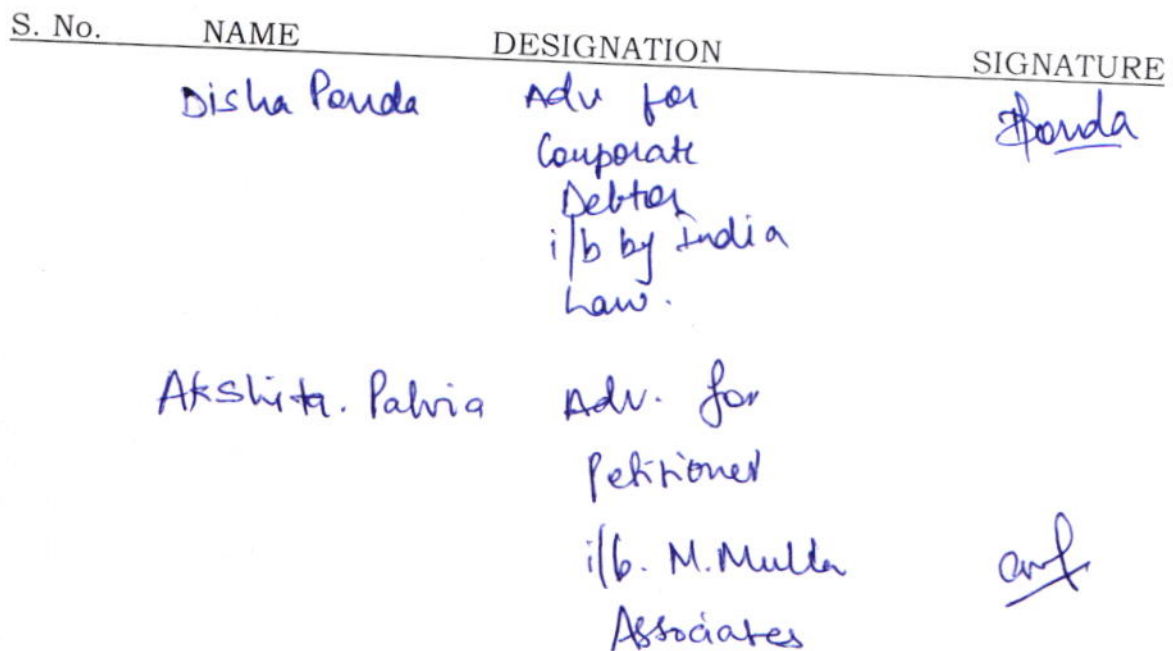 S. No. NAME DESIGNATION SIGNATURE
Disha Panda Adv for
Corporate
Debtor
i/b by India
Law.
Akshita. Palvia Adv. for
Petitioner
i/b. M. Mulla
Associates